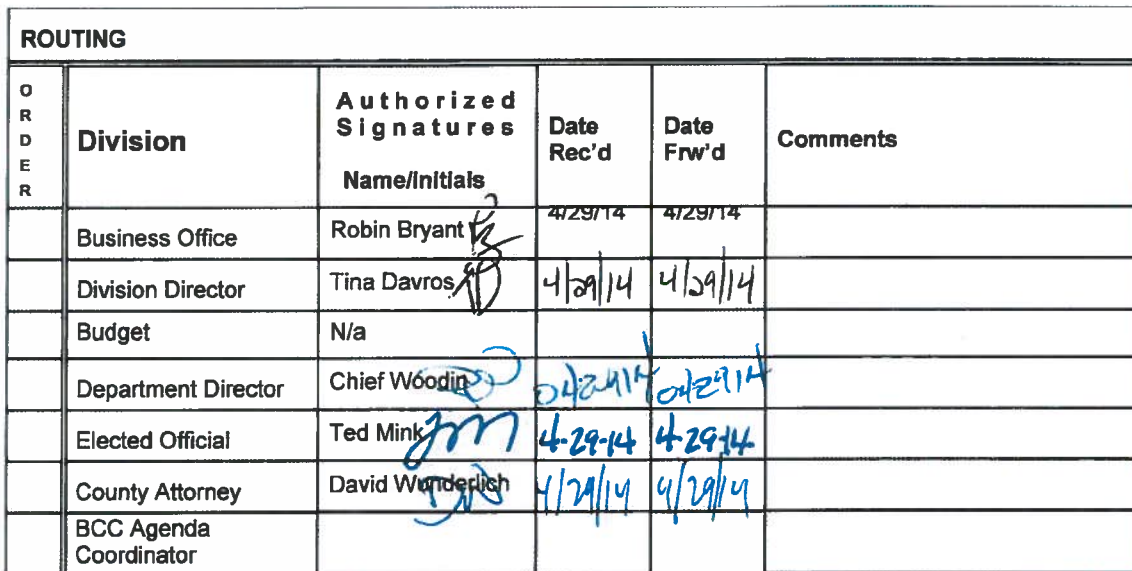 ROUTING
ORDER
Division
Authorized Signatures
Name/Initials
Date Rec'd
Date Frw'd
Comments
Business Office Robin Bryant 4/29/14 4/29/14
Division Director Tina Davros 4/29/14 4/29/14
Budget N/a
Department Director Chief Woodin 04/29/14 04/29/14
Elected Official Ted Mink 4-29-14 4-29-14
County Attorney David Wunderlich 4/29/14 4/29/14
BCC Agenda
Coordinator